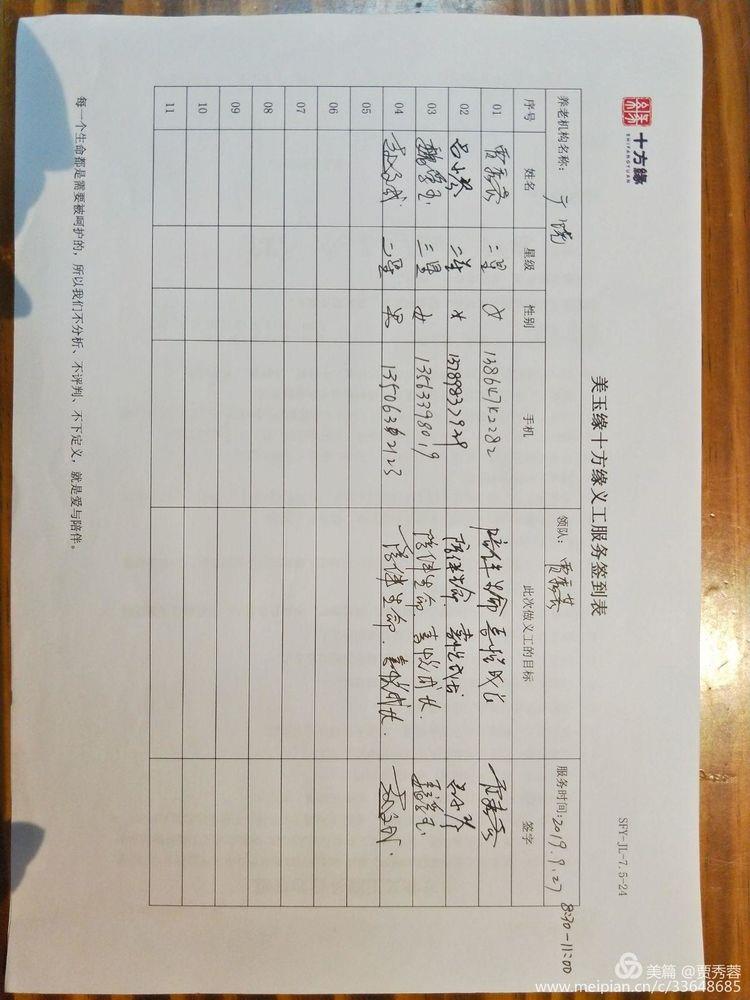 十方缘
SHIFANGYUAN
SFY-JL-7.5-24
美玉缘十方缘义工服务签到表
养老机构名称： 领队：贾秀蓉 服务时间：2019.9.27 8:30-11:00
序号 姓名 星级 性别 手机 此次做义工的目标 签字
01 贾秀蓉 二星 女 陪伴生命 喜悦成长 贾秀蓉
02 女 13789832929 陪伴生命 喜悦成长
03 三星 女 13563398019 陪伴生命.喜悦成长.
04 二星 男 陪伴生命.喜悦成长.
05
06
07
08
09
10
11
每一个生命都是需要被呵护的，所以我们不分析、不评判、不下定义，就是爱与陪伴。
美篇 @贾秀蓉
www.meipian.cn/c/33648685